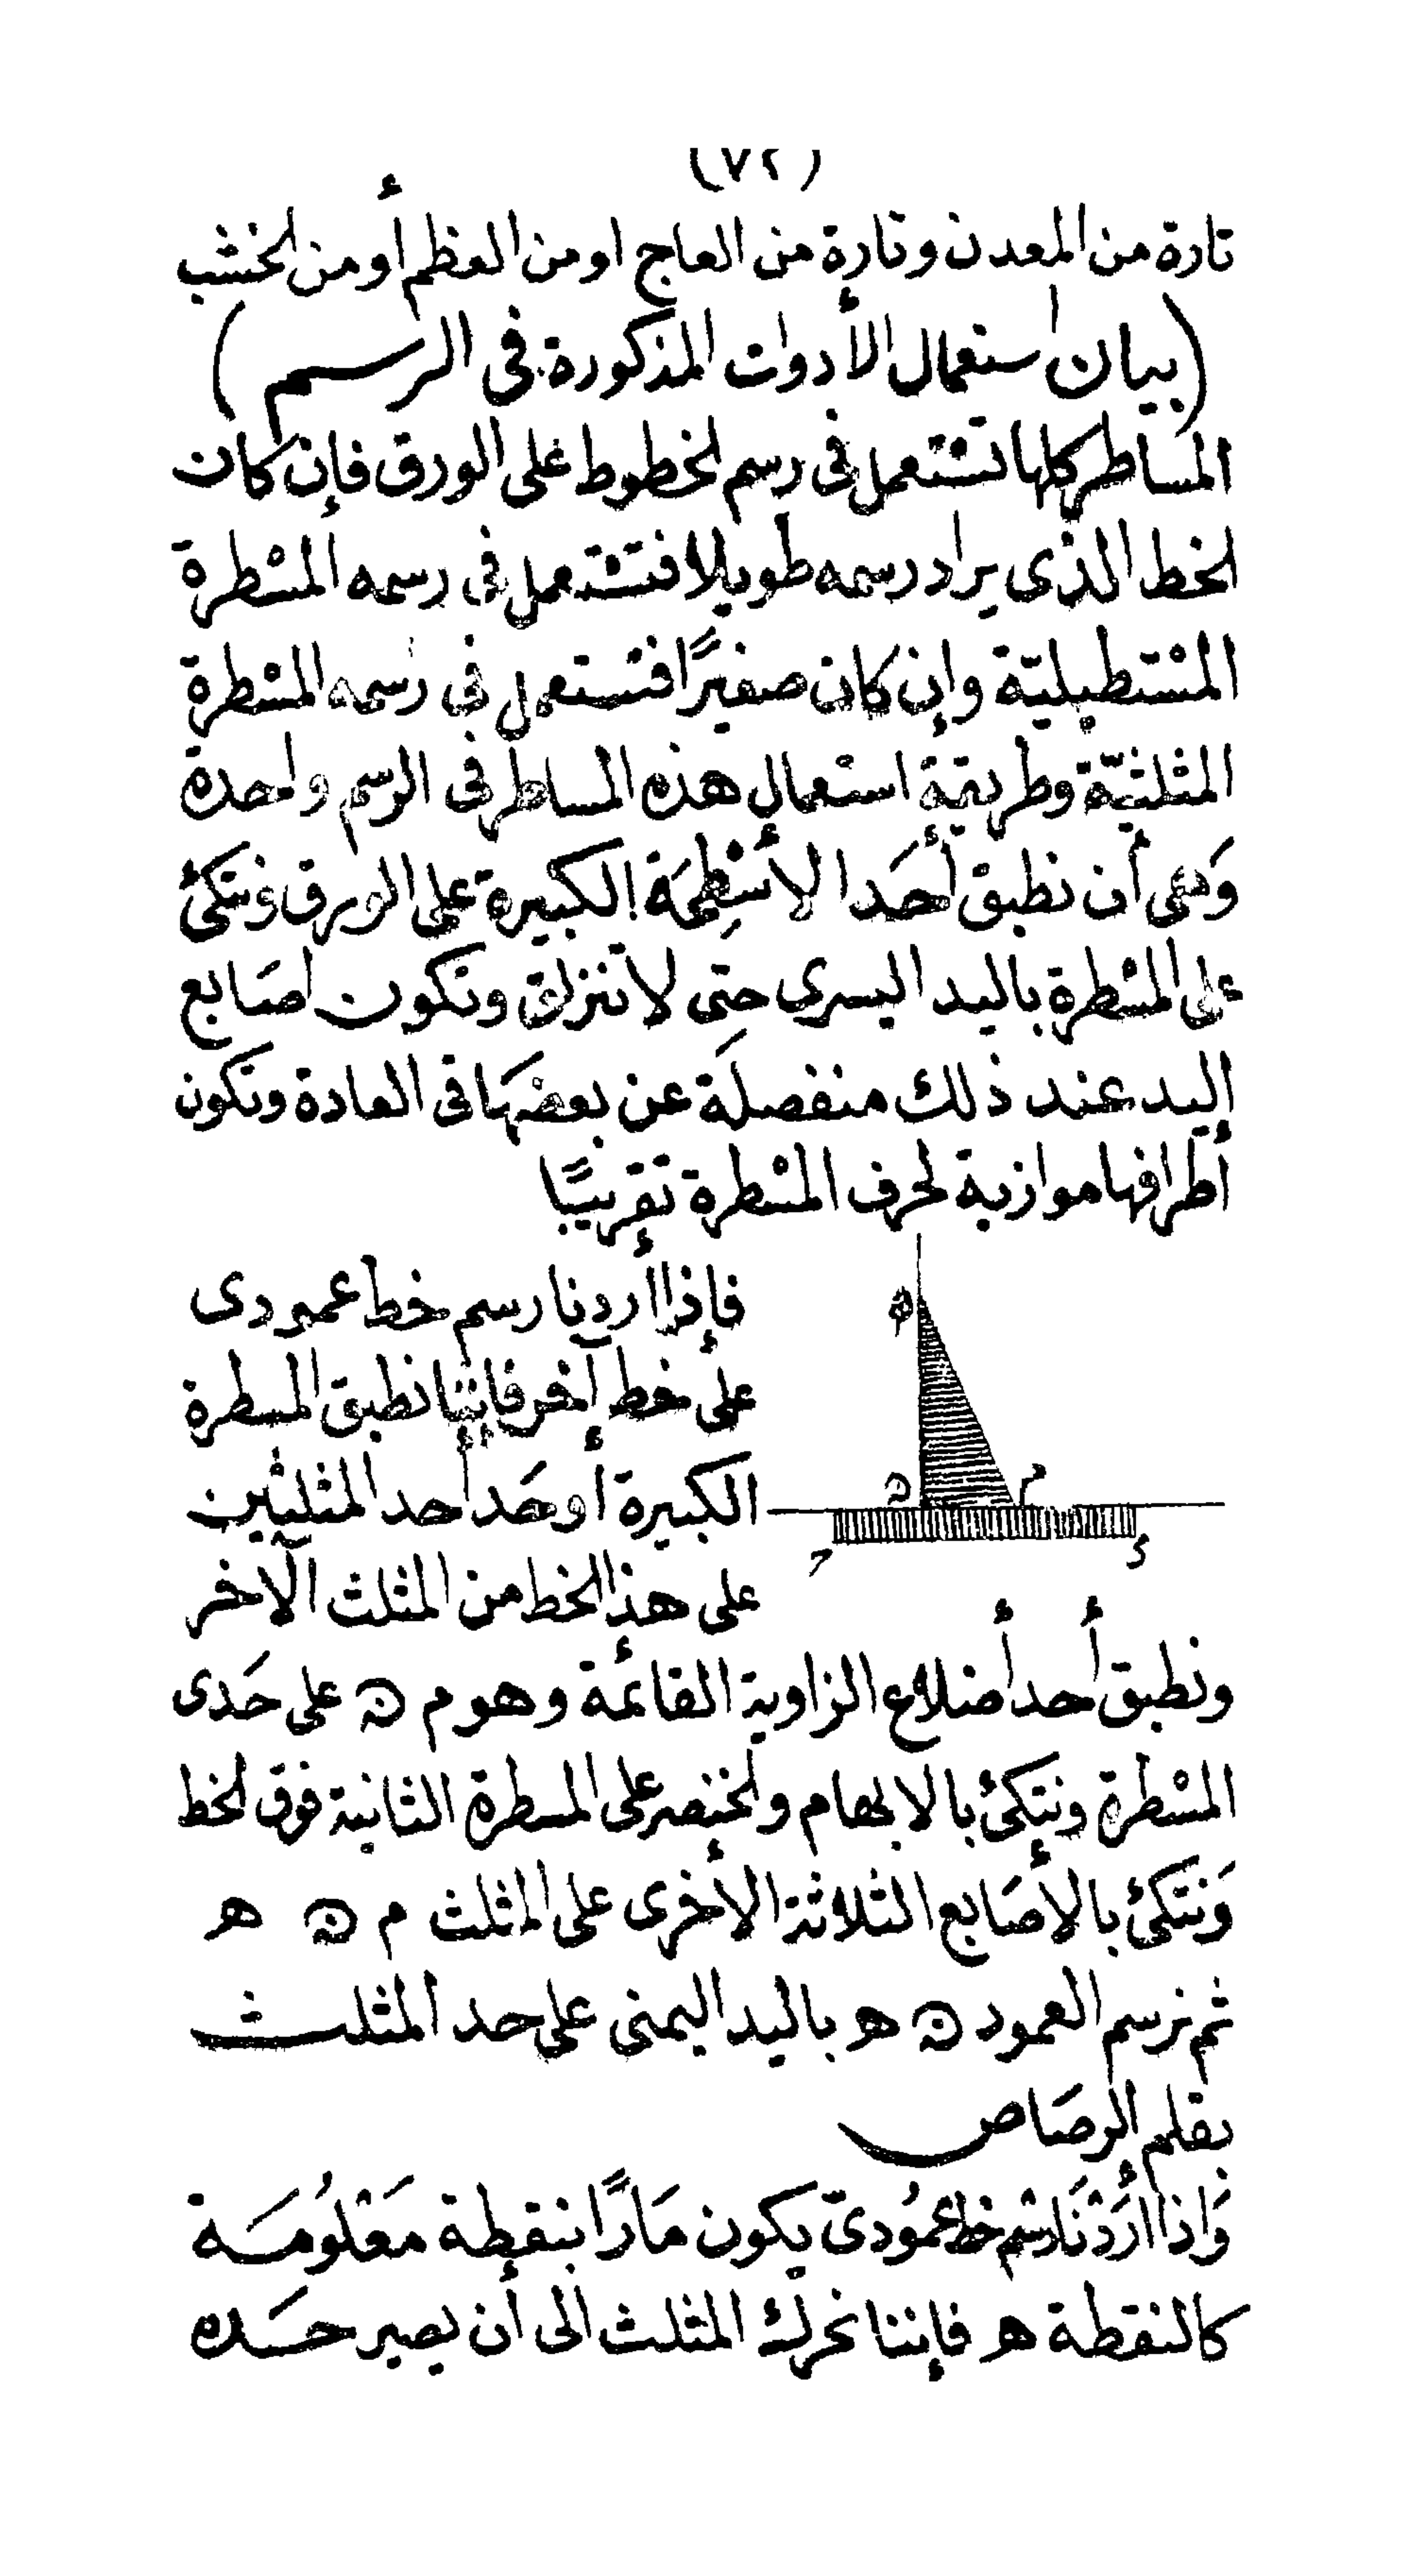 (٧٢)
تارة من المعدن وتارة من العاج او من العظم أو من الخشب
(بيان استعمال الأدوات المذكورة فى الرسم)
المساطر كلها تستعمل فى رسم الخطوط على الورق فإن كان
الخط الذى يراد رسمه طويلا فتستعمل فى رسمه المسْطرة
المسْتطيليّة وإن كان صغيرًا فتستعمل فى رسمه المسْطرة
المثلثيّة وطريقة استعمال هذه المساطر فى الرسم واحدة
وَهى أن نطبق أحَد الأسْطِحَة الكبيرة على الورق ونتكئ
على المسْطرة باليد اليسرى حتى لا تنزلق وتكون اصَابع
اليد عند ذلك منفصلَة عن بعضهَا فى العادة وتكون
أطرافها موازية لحرف المسْطرة تقريبًا
فإذا أردنا رسم خط عمودى
على خط آخر فإننا نطبق المسطرة
الكبيرة أو حَد أحد المثلثين
على هذا الخط من المثلث الآخر
ه
ن
م
ح
د
ونطبق أحد أضلاع الزاوية القائمة وهو م ن على حَدى
المسْطرة ونتكئ بالابهام والخنصر على المسطرة الثانية فوق الخط
وَنتكئ بالأصَابع الثلاثة الأخرى على المثلث م ن ه
ثم نرسم العمود ن ه باليد اليمنى على حد المثلث
بقلم الرصَاص
وَاذا أرَدْنَا رسْم خط عمُودىّ يكون مَارًّا بنقطة مَعْلُومَة
كالنقطة ه فإننا نحرك المثلث الى أن يصير حَده